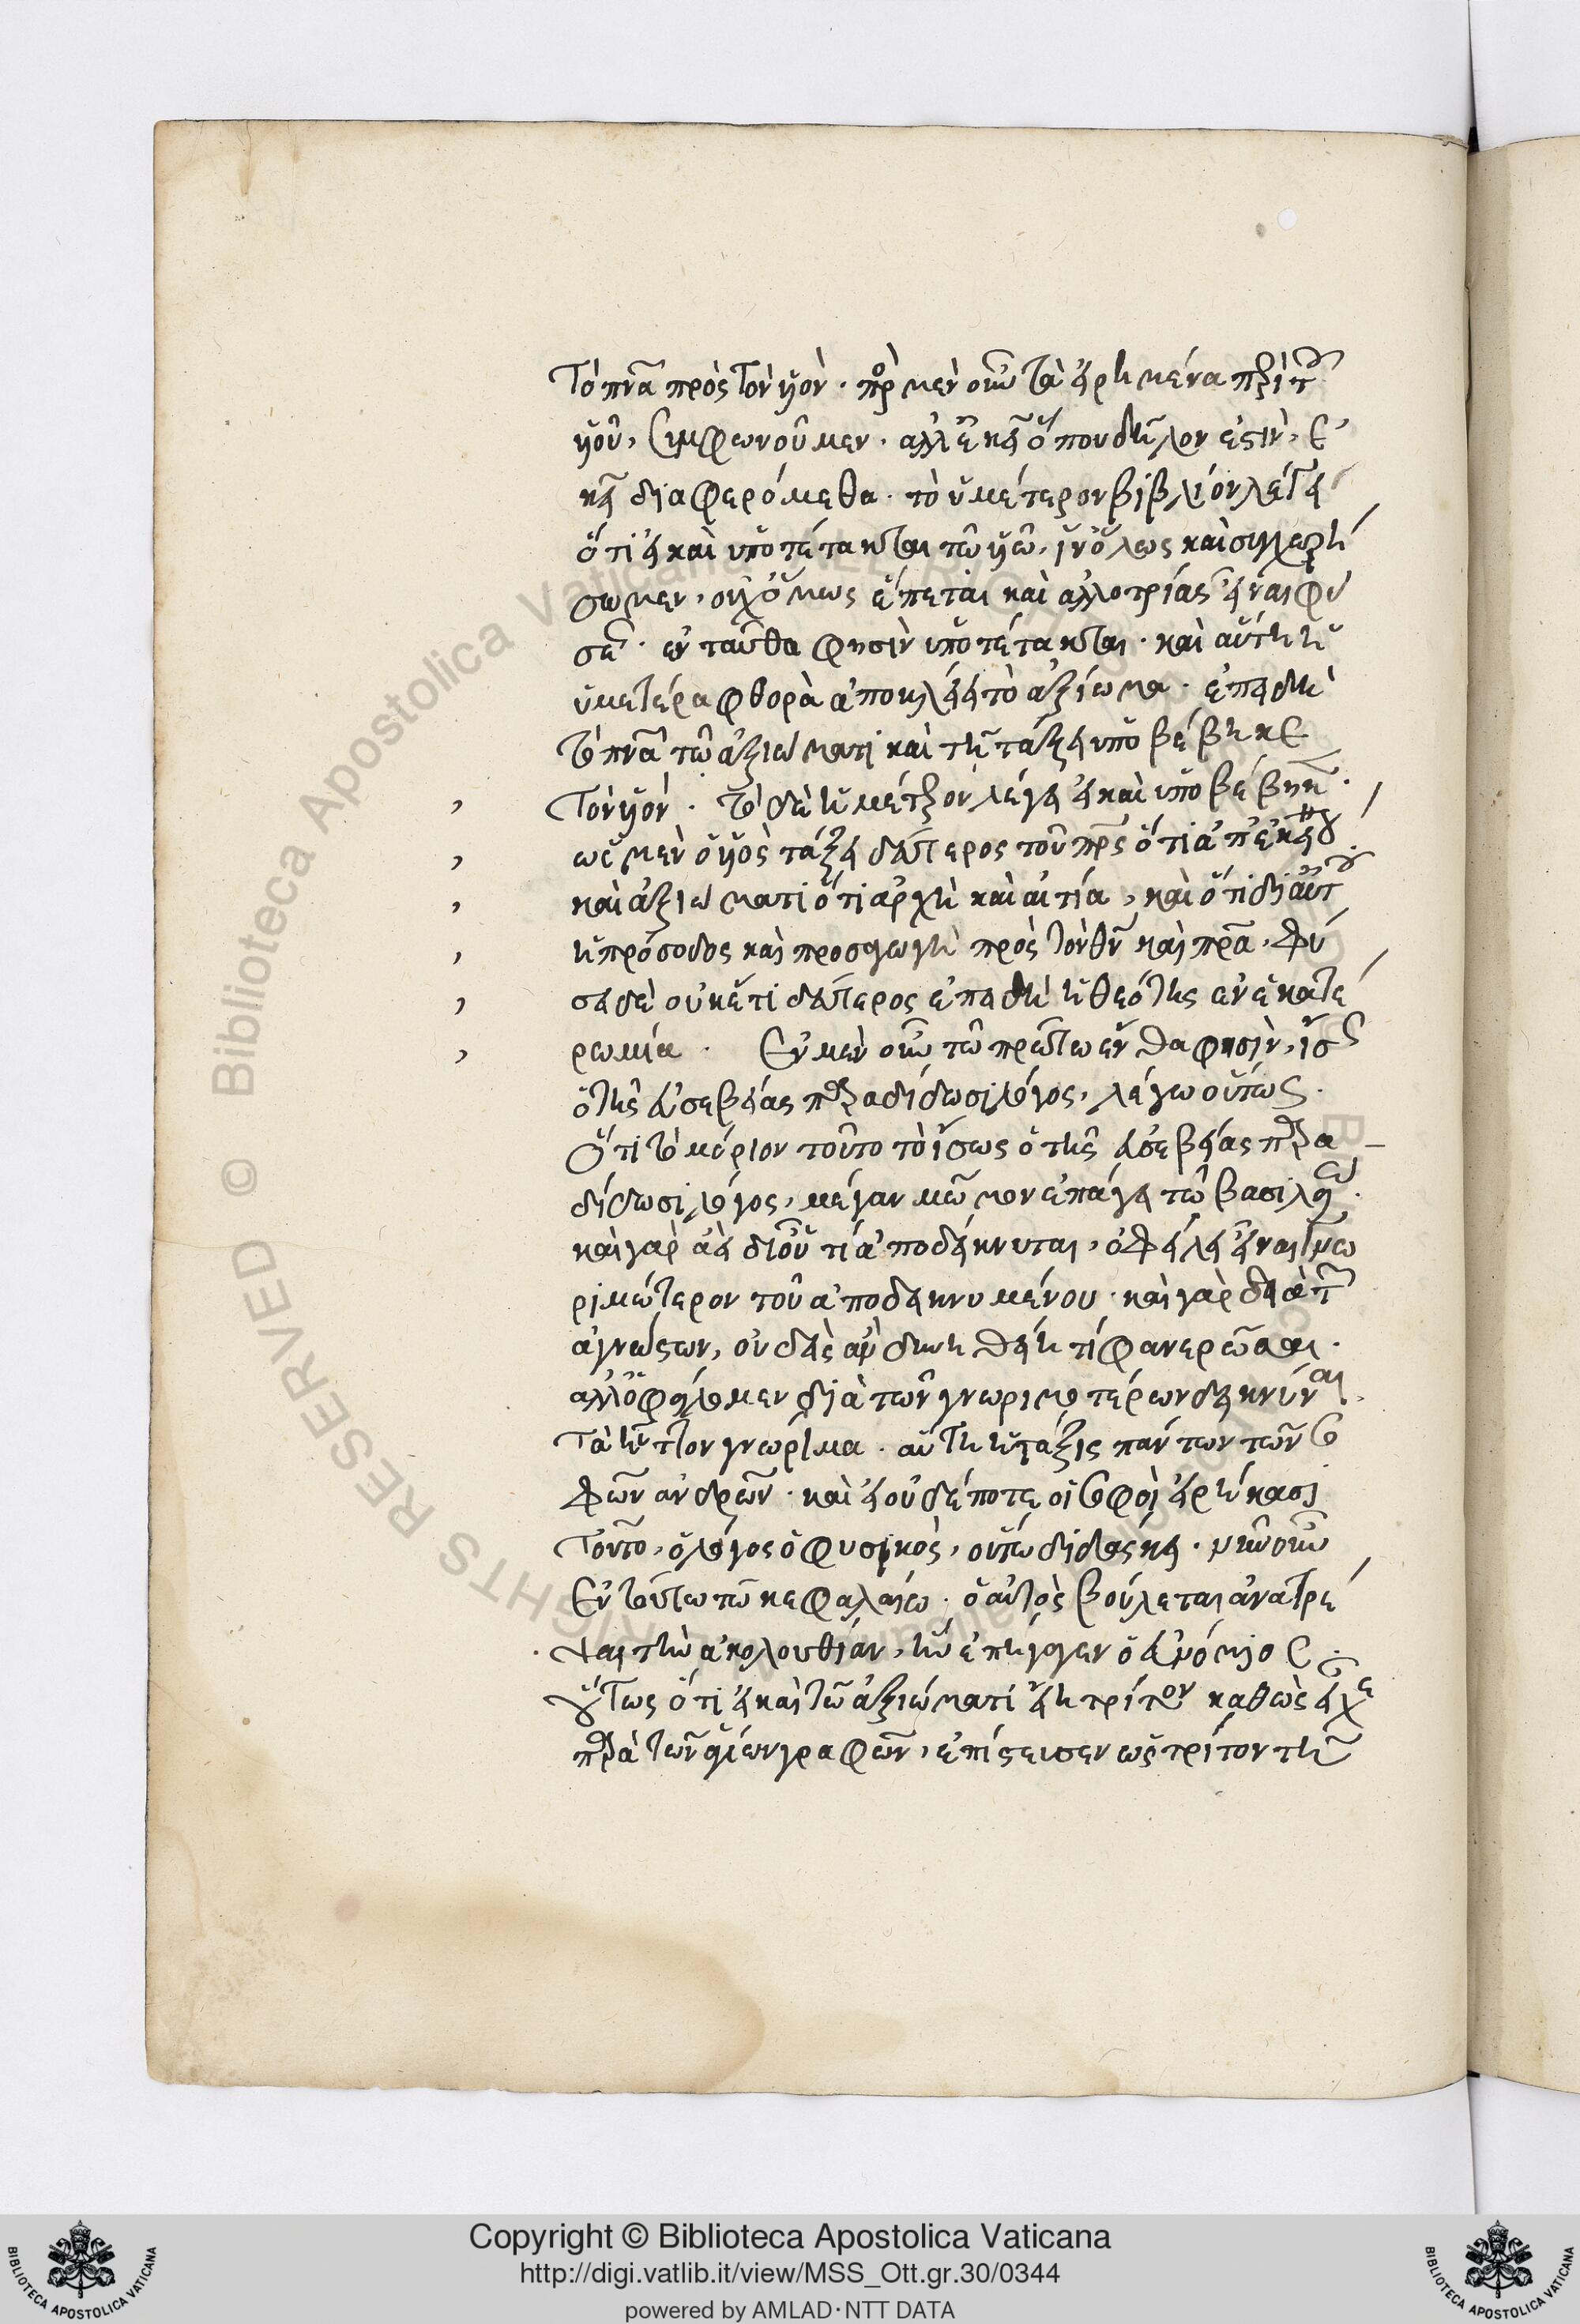 τὸ πνᾶ πρὸς τὸν υἱὸν. περὶ μὲν οὖν τὰ εἰρημένα περὶ τοῦ
υἱοῦ, συμφωνοῦμεν. ἀλλ' ἐκεῖ ὅπου δῆλον ἐστὶν, ἐ
κεῖ διαφερόμεθα. τὸ ὑμέτερον βιβλίον λέγει
ὅτι εἰ καὶ ὑποτέτακται τῷ υἱῷ, ἵν' ὅλως καὶ συγχωρή
σωμεν, οὐχ' ὅμως ἕπεται καὶ ἀλλοτρίας εἶναι φύ
σεως. ἐνταῦθα φησὶν ὑποτέτακται. καὶ αὕτη ἡ
ὑμετέρα φθορὰ ἀποκλείει τὸ ἀξίωμα. ἐπειδὴ
τὸ πνᾶ τῷ ἀξιώματι καὶ τῇ τάξει ὑποβέβηκε
τὸν υἱόν. τὸ δὲ ἡμέτερον λέγει εἰ καὶ ὑποβέβηκεν.
ὡς μὲν ὁ υἱὸς τάξει δεύτερος τοῦ πρς ὅτι ἀπ' ἐκείνου.
καὶ ἀξιώματι ὅτι ἀρχὴ καὶ αἰτία, καὶ ὅτι δι' αὐτοῦ
ἡ πρόσοδος καὶ προσαγωγὴ πρὸς τὸν θν καὶ πρα, φύ
σει δὲ οὐκέτι δεύτερος ἐπειδὴ ἡ θεότης ἐν ἑκατέ
ρω μία. Ἐν μὲν οὖν τῷ πρώτω ἔνθα φησὶν, ἴσως
ὁ τῆς εὐσεβείας παραδίδωσι λόγος, λέγω οὕτως.
Ὅτι τὸ μόριον τοῦτο τὸ ἴσως ὁ τῆς εὐσεβείας παρα
δίδωσι λόγος, μέγαν μῶμον ἐπάγει τῷ βασιλείω.
καὶ γὰρ ἀεὶ δι' οὗ τί ἀποδείκνυται, ὀφείλει εἶναι γνω
ριμώτερον τοῦ ἀποδεικνυμένου. καὶ γὰρ διὰ τῶν
ἀγνώστων, οὐδεὶς ἂν δυνηθείη τί φανερῶσαι.
ἀλλ' ὀφείλομεν διὰ τῶν γνωριμοτέρων δεικνύναι
τὰ ἧττον γνώριμα. αὕτη ἡ τάξις πάντων τῶν σο
φῶν ἀνδρῶν. καὶ εἰ οὐδέποτε οἱ σοφοὶ εἰρήκασι
τοῦτο, ὁ λόγος ὁ φυσικὸς, οὕτω διδάσκει. νῦν οὖν
ἐν τούτω τῷ κεφαλαίω. ὁ αὐτὸς βούλεται ἀνατρέ
ψαι τὴν ἀκολουθίαν, ἣν ἐπήγαγεν ὁ εὐνόμιος.
οὕτως ὅτι εἰ καὶ τῷ ἀξιώματι εἴη τρίτον καθὼς εἶχε
παρὰ τῶν ἁγίων γραφῶν, ἐπίστευσεν ὡς τρίτον τῇ
Copyright © Biblioteca Apostolica Vaticana
http://digi.vatlib.it/view/MSS_Ott.gr.30/0344
powered by AMLAD·NTT DATA